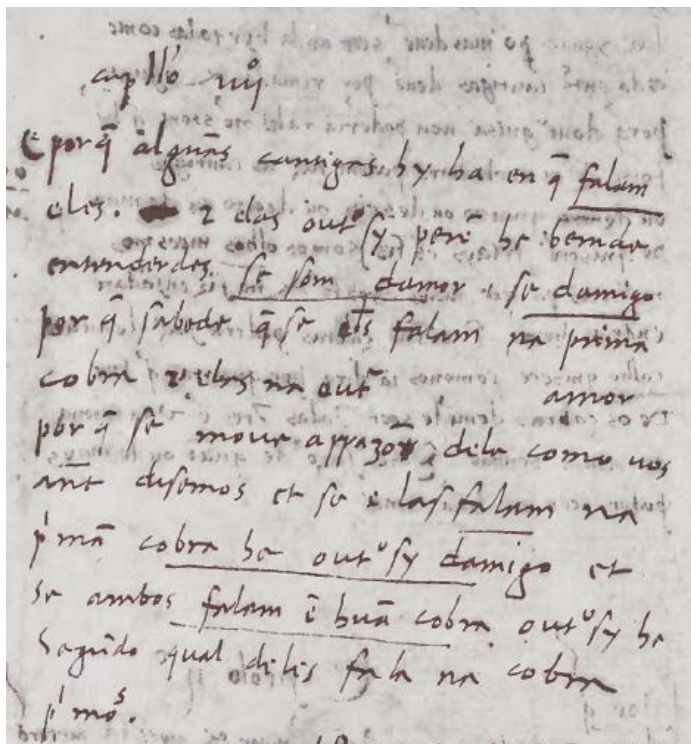 capllo iiijo
E porq̃ algũas cantigas hy ha en q̃ falam
eles. 2 elas outo sy perẽ he bem de
entenderdes se som damor e se damigo
porq̃ sabede q̃ se eles falam na prima
cobra 2 elas na out̃ amor
porq̃ se move a rrazõ dele como vos
ant̃ disemos et se elas falam na
p̃mã cobra he outo sy damigo et
se ambos falam ẽ hũa cobra outo sy he
segũdo qual deles fala na cobra